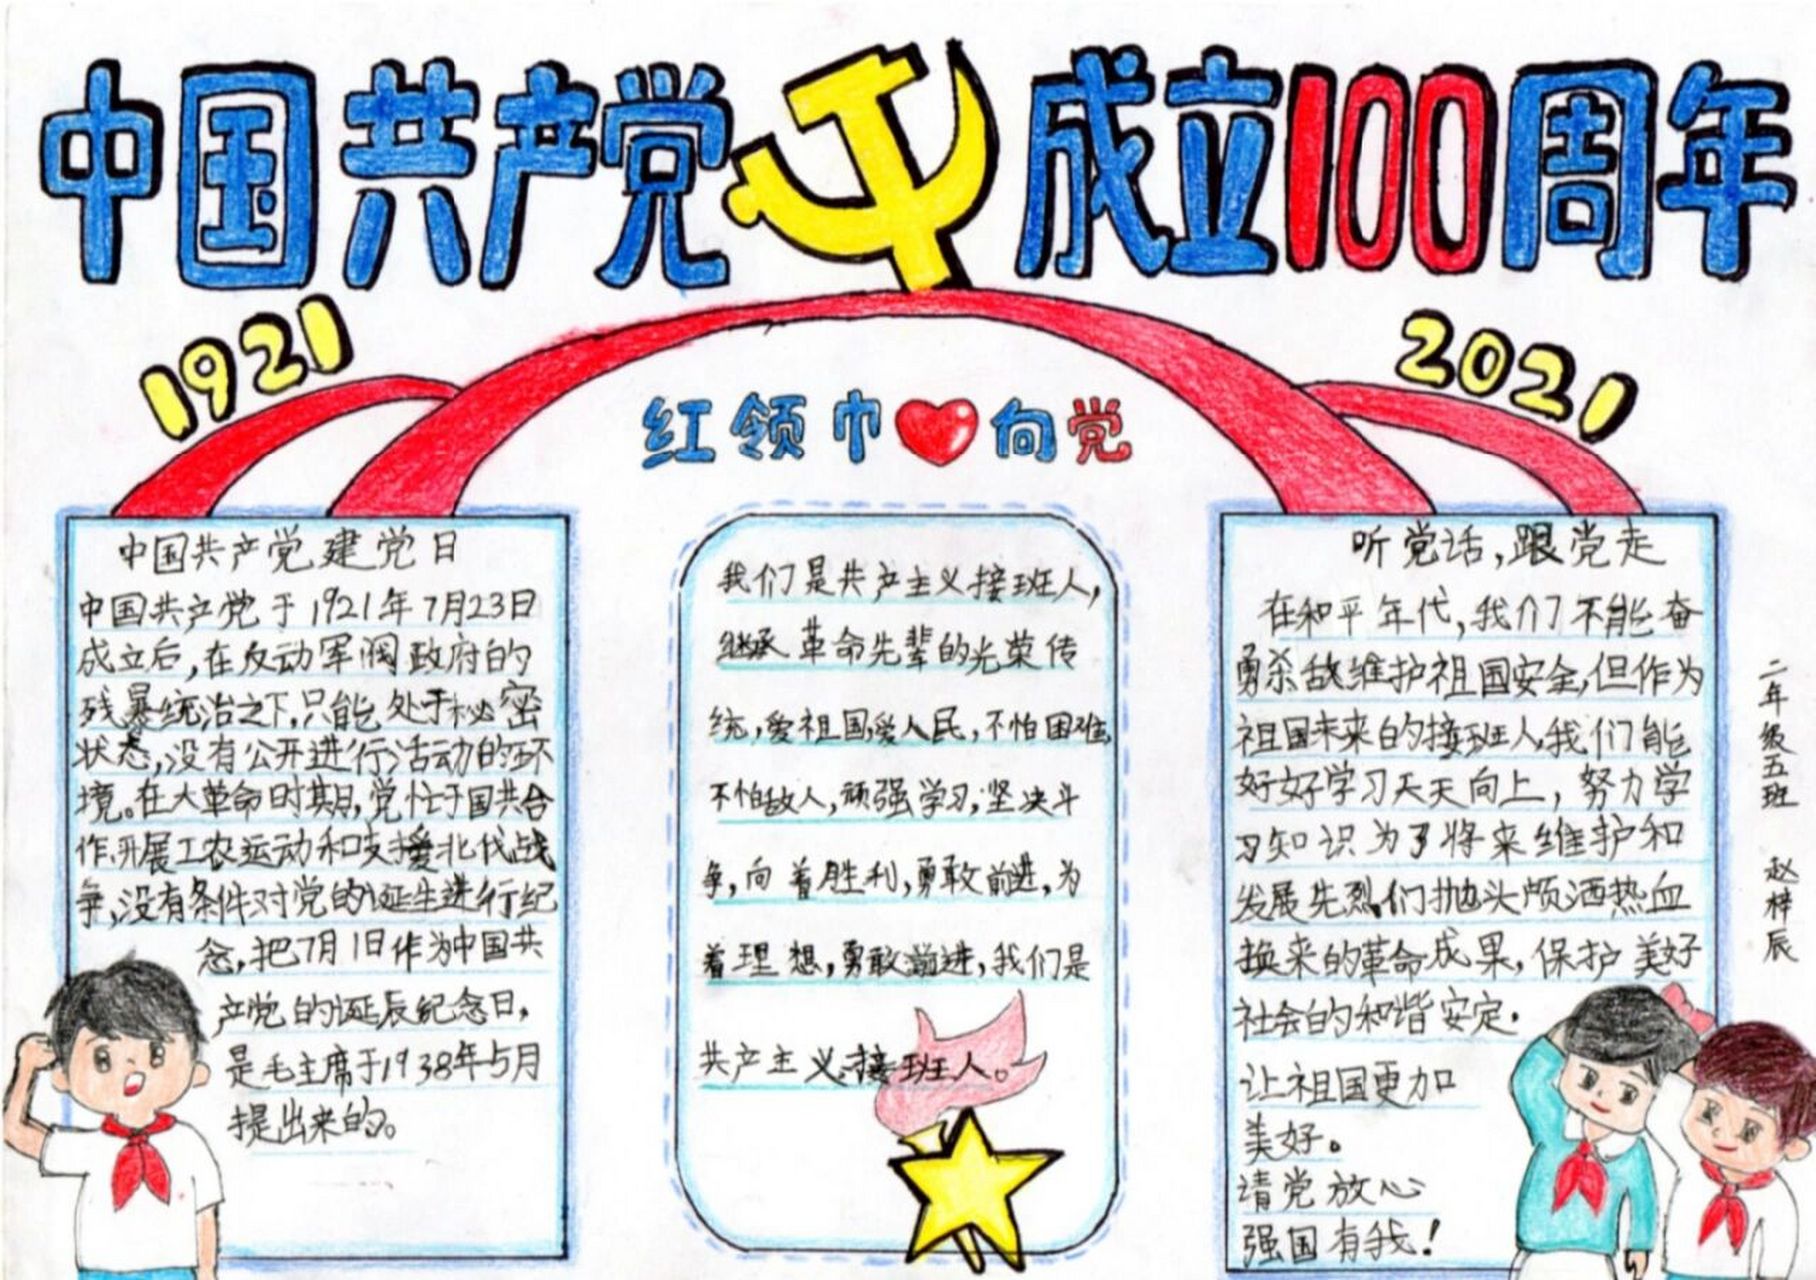 中国共产党成立100周年
1921
2021
红领巾向党
中国共产党建党日
中国共产党于1921年7月23日
成立后,在反动军阀政府的
残暴统治之下,只能处于秘密
状态,没有公开进行活动的环
境。在大革命时期,党忙于国共合
作,开展工农运动和支援北伐战
争,没有条件对党的诞生进行纪
念,把7月1日作为中国共
产党的诞辰纪念日,
是毛主席于1938年5月
提出来的。
我们是共产主义接班人,
继承革命先辈的光荣传
统,爱祖国,爱人民,不怕困难,
不怕敌人,顽强学习,坚决斗
争,向着胜利,勇敢前进,为
着理想,勇敢前进,我们是
共产主义接班人。
听党话,跟党走
在和平年代,我们不能奋
勇杀敌维护祖国安全,但作为
祖国未来的接班人,我们能
好好学习天天向上,努力学
习知识为了将来维护和
发展先烈们抛头颅洒热血
换来的革命成果,保护美好
社会的和谐安定.
让祖国更加
美好。
请党放心
强国有我!
二年级五班 赵梓辰